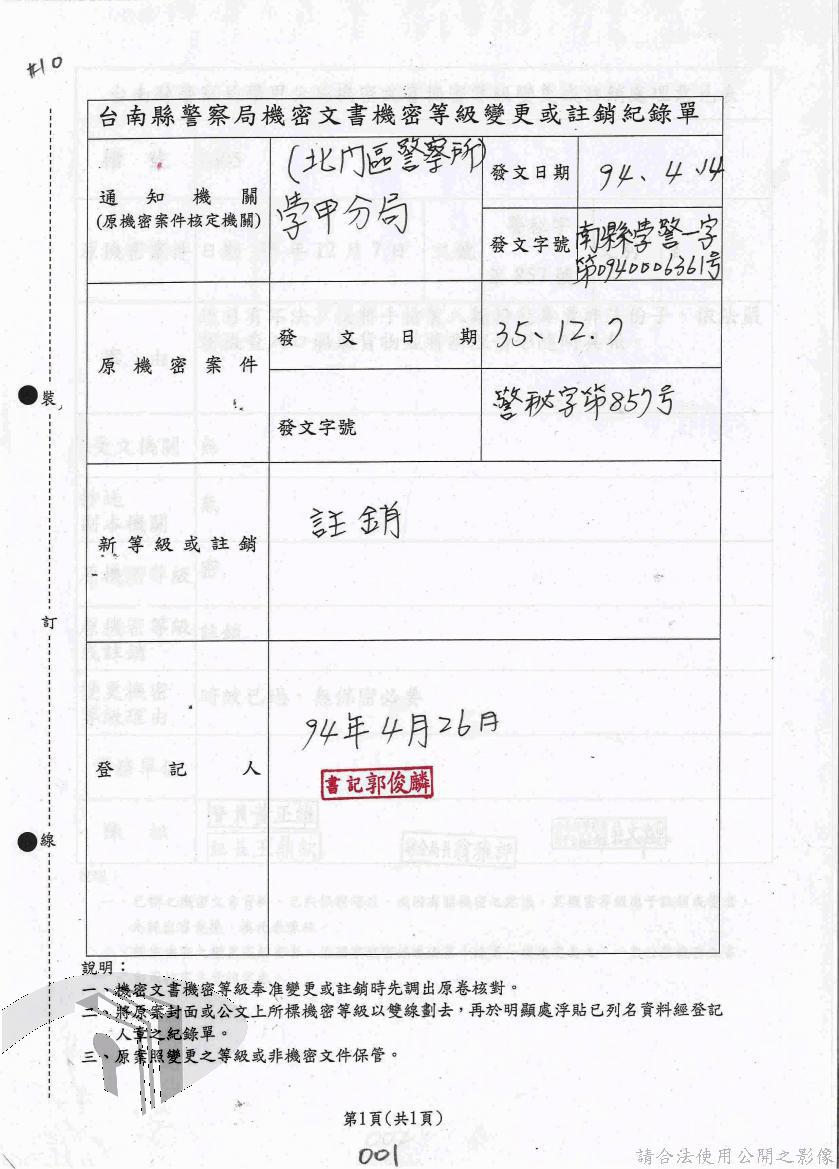 #10
台南縣警察局機密文書機密等級變更或註銷紀錄單
通知機關
(原機密案件核定機關)
(北门區警察所)
学甲分局
發文日期
94、4、14
發文字號
南縣学警一字
第0940006361号
原機密案件
發文日期
35、12、7
發文字號
警秘字第857号
新等級或註銷
註銷
登記人
94年4月26日
書記郭俊麟
裝
訂
線
說明：
一、機密文書機密等級奉准變更或註銷時先調出原卷核對。
二、將原案封面或公文上所標機密等級以雙線劃去，再於明顯處浮貼已列名資料經登記
人章之紀錄單。
三、原案照變更之等級或非機密文件保管。
第1頁(共1頁)
001
請合法使用公開之影像